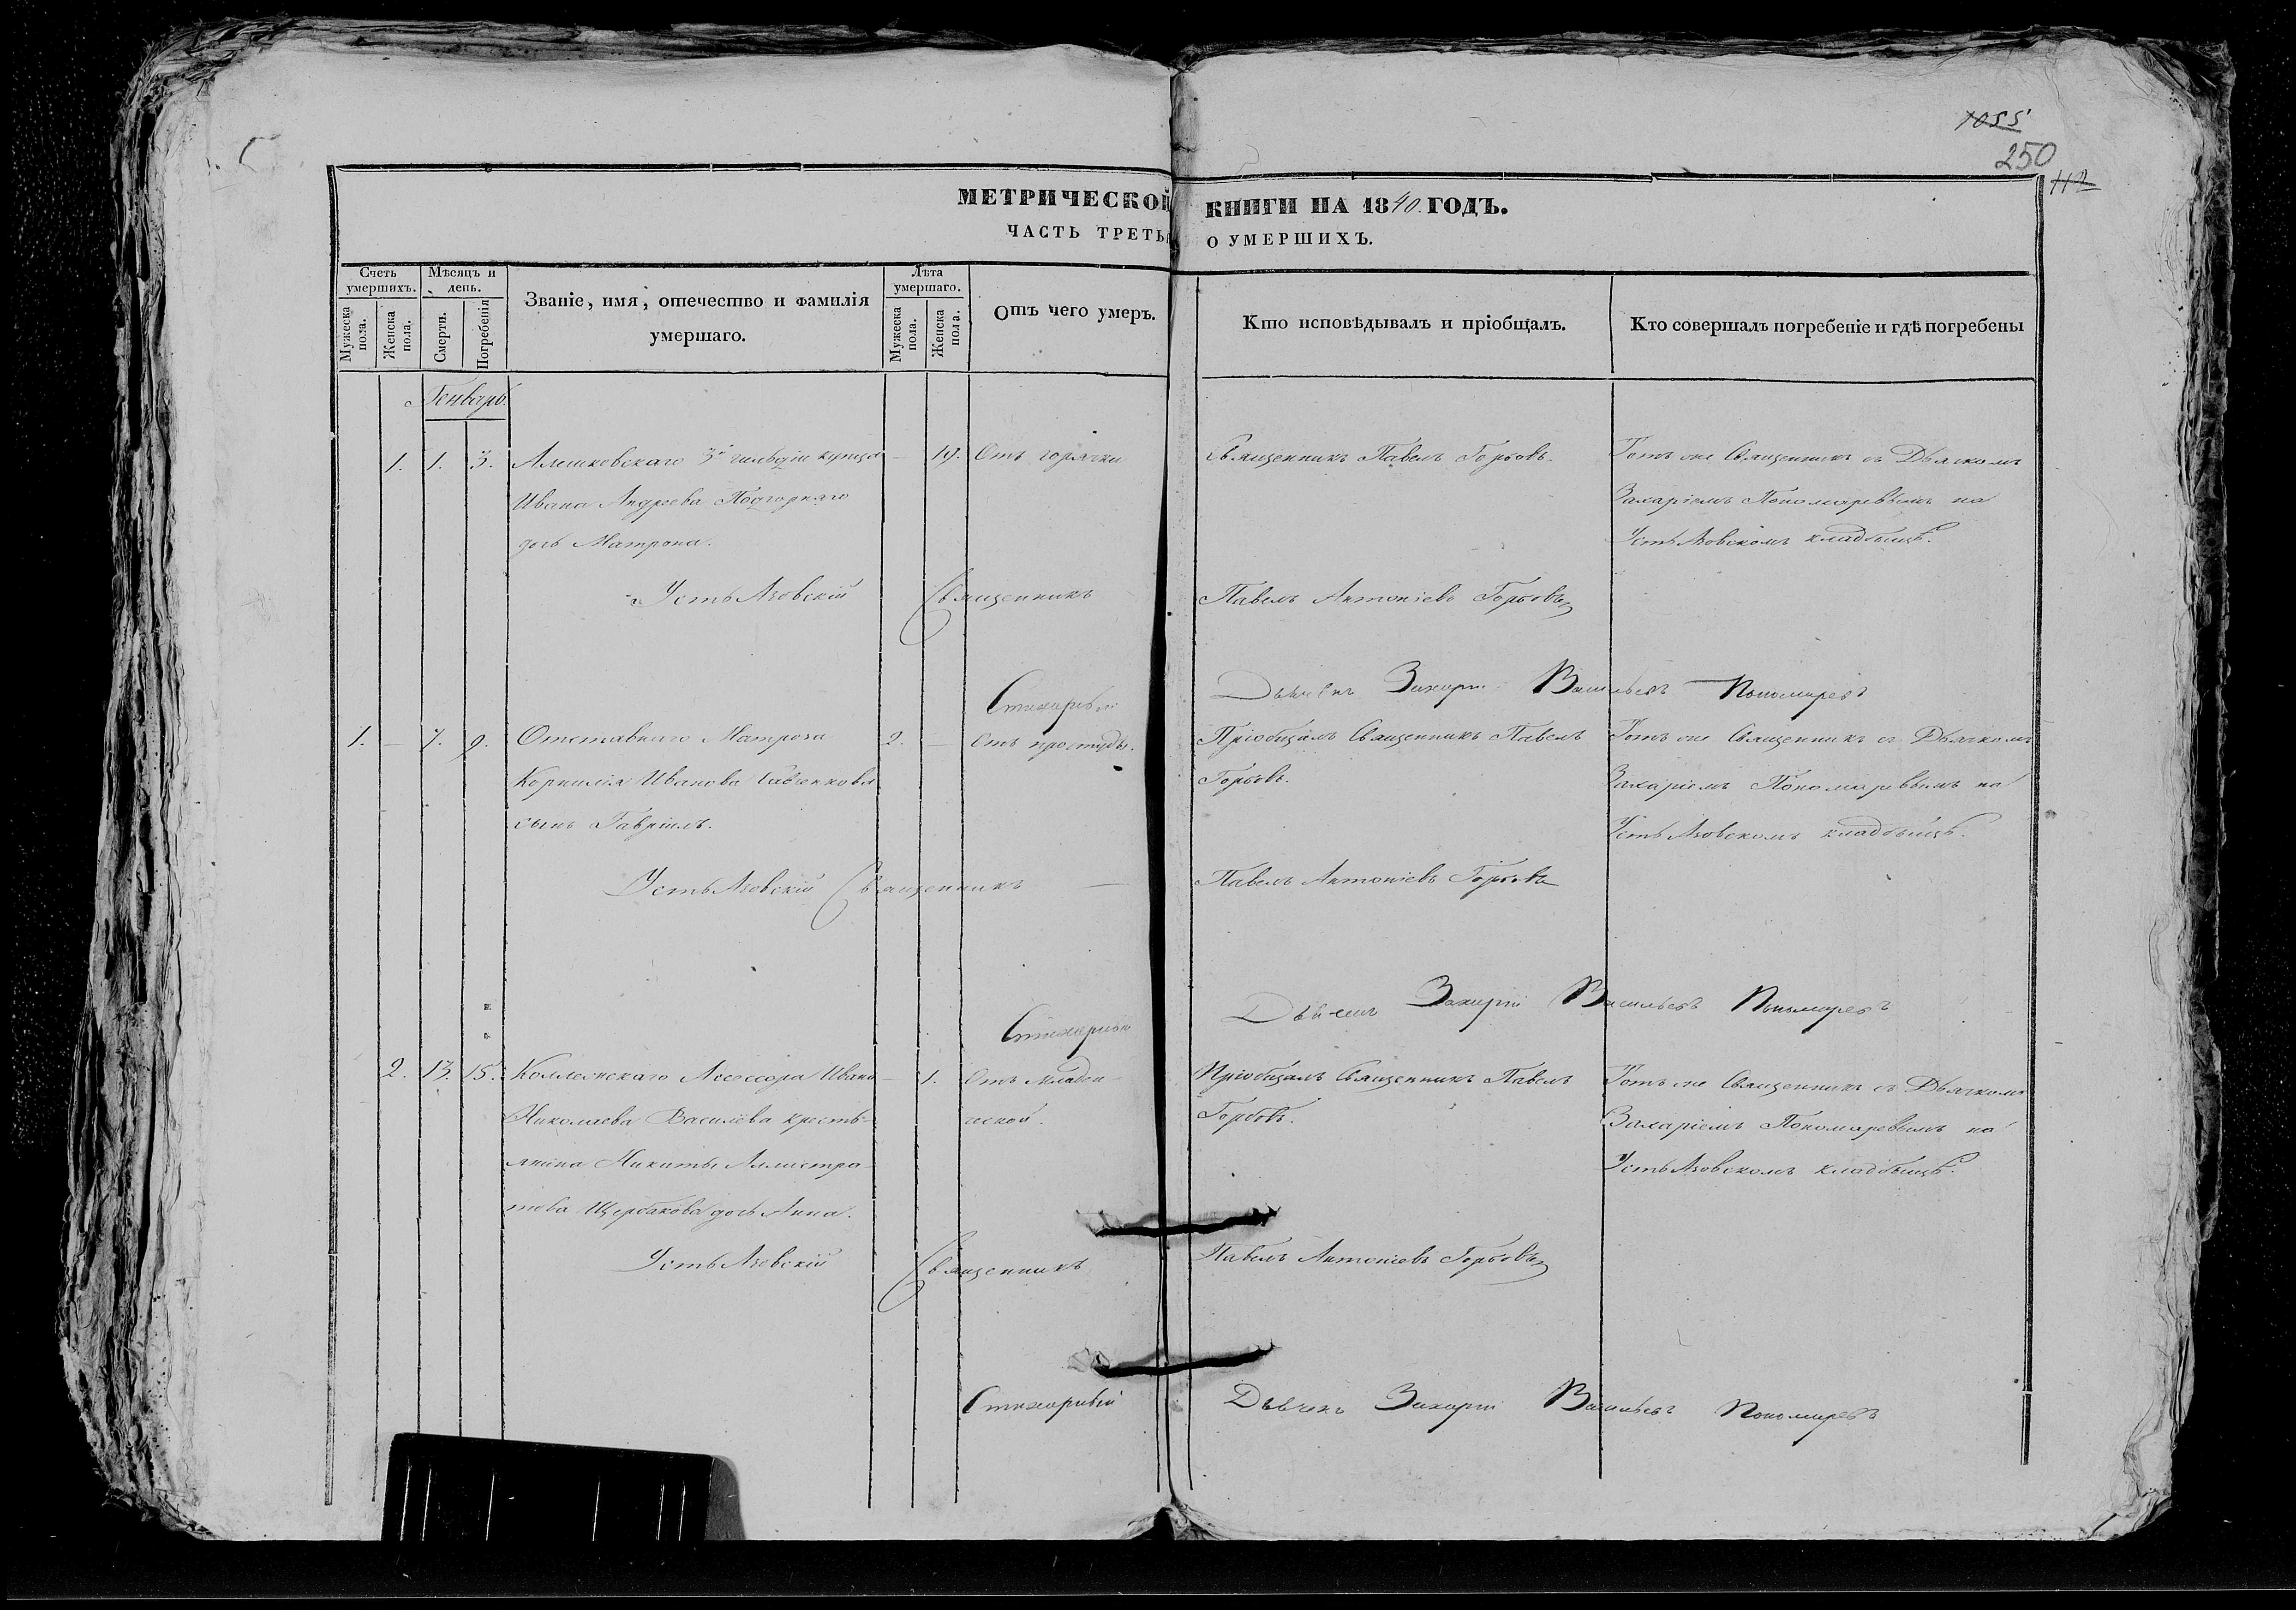 1055
250
112
МЕТРИЧЕСКОЙ КНИГИ НА 1840. ГОДЪ.
ЧАСТЬ ТРЕТЬЯ О УМЕРШИХЪ.
Счетъ умершихъ.
Мужеска пола.
Женска пола.
Мѣсяцъ и день.
Смерти.
Погребенія
Званіе, имя, отечество и фамилія умершаго.
Лѣта умершаго.
Мужеска пола.
Женска пола.
Отъ чего умеръ.
Кто исповѣдывалъ и пріобщалъ.
Кто совершалъ погребеніе и гдѣ погребены
Генварь.
1. 1. 3. Алешковскаго 3й гильдіи купца - 19. Отъ горячки Священникъ Павелъ Горбовъ. Тотъ же Священникъ съ Дьячкомъ
Ивана Андреева Подгорнаго Захаріемъ Пономаревымъ на
дочь Матрона. Усть Азовскомъ кладбищѣ.
Усть Азовскій Священникъ Павелъ Антоніевъ Горбовъ
Стихарный Дьячекъ Захарій Васильевъ Пономаревъ
1. - 7. 9. Отставнаго Матроза 2. - Отъ простуды. Пріобщалъ Священникъ Павелъ Тотъ же Священникъ съ Дьячкомъ
Корнилія Иванова Горбовъ. Захаріемъ Пономаревымъ на
сынъ Гавріилъ. Усть Азовскомъ кладбищѣ.
Усть Азовскій Священникъ Павелъ Антоніевъ Горбовъ
Стихарный Дьячекъ Захарій Васильевъ Пономаревъ
2. 13. 15. Коллежскаго Ассесора Ивана - 1. Отъ младен- Пріобщалъ Священникъ Павелъ Тотъ же Священникъ съ Дьячкомъ
Николаева Василёва кресть- ческой. Горбовъ. Захаріемъ Пономаревымъ на
янина Никиты Усть Азовскомъ кладбищѣ.
Щербакова дочь Анна.
Усть Азовскій Священникъ Павелъ Антоніевъ Горбовъ
Стихарный Дьячекъ Захарій Васильевъ Пономаревъ